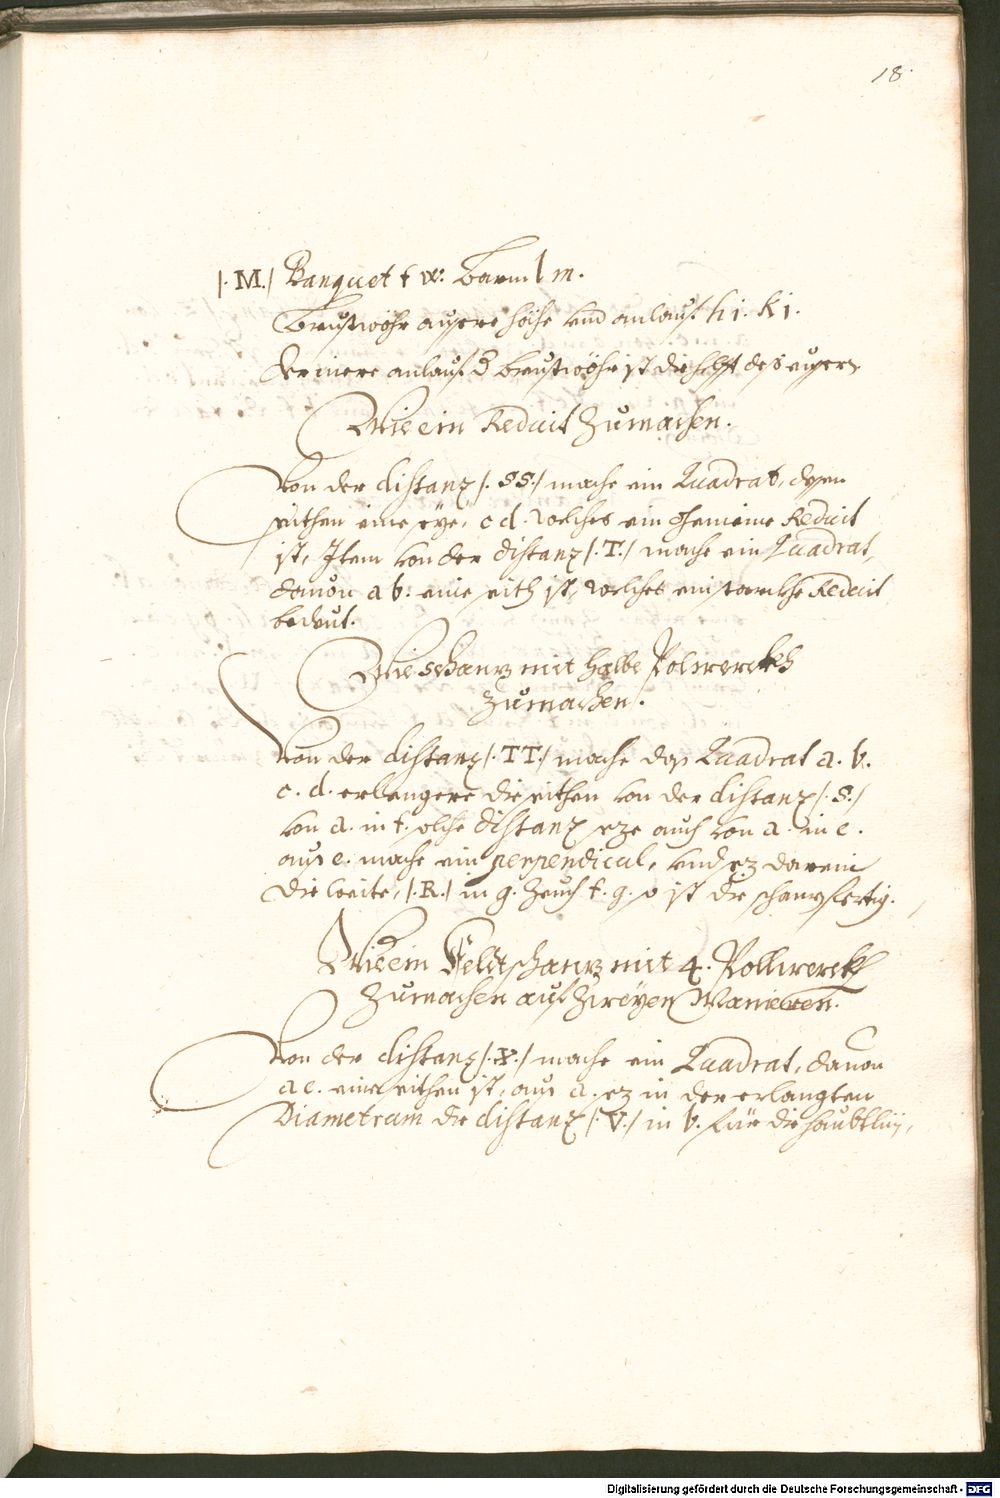 18.
/. M./ Banquet f w: barm l m.
Brustwöhr aussere höhe vnd anlauf h i. k i.
Der inere anlauf d Brustwöhr ist die helfft des eussern
Wie ein Reduit Zumachen.
Von der distanz /. SS./ mache ein Quadrat, dessen
seithen eine seye, c d. welches ein gemeine Reduit
ist, Item von der distanz /. T./ mache ein Quadrat,
dauon a b. eine seith ist, welches ein Reduit
bedeut.
Wie schanz mit halbe Polwerckh
Zumachen.
Von der distanz /. TT./ mache das Quadrat a. b.
c. d. erlengere die seithen von der distanz /. S./
von a. in f. solche distanz seze auch von a. in e.
aus e. mache ein perpendicul, vnd sez darein
die weite, /. R./ in g. Zeuch f. g. so ist die schanz fertig.
Wie ein Feldtschanz mit 4. Pollwerckh
Zumachen auf Zweyen Manieren.
Von der distanz /. X./ mache ein Quadrat, dauon
a c. eine seithen ist, aus a. sez in den erlangten
Diametrum die distanz /. V./ in b. für die haubtlini,
Digitalisierung gefördert durch die Deutsche Forschungsgemeinschaft - DFG